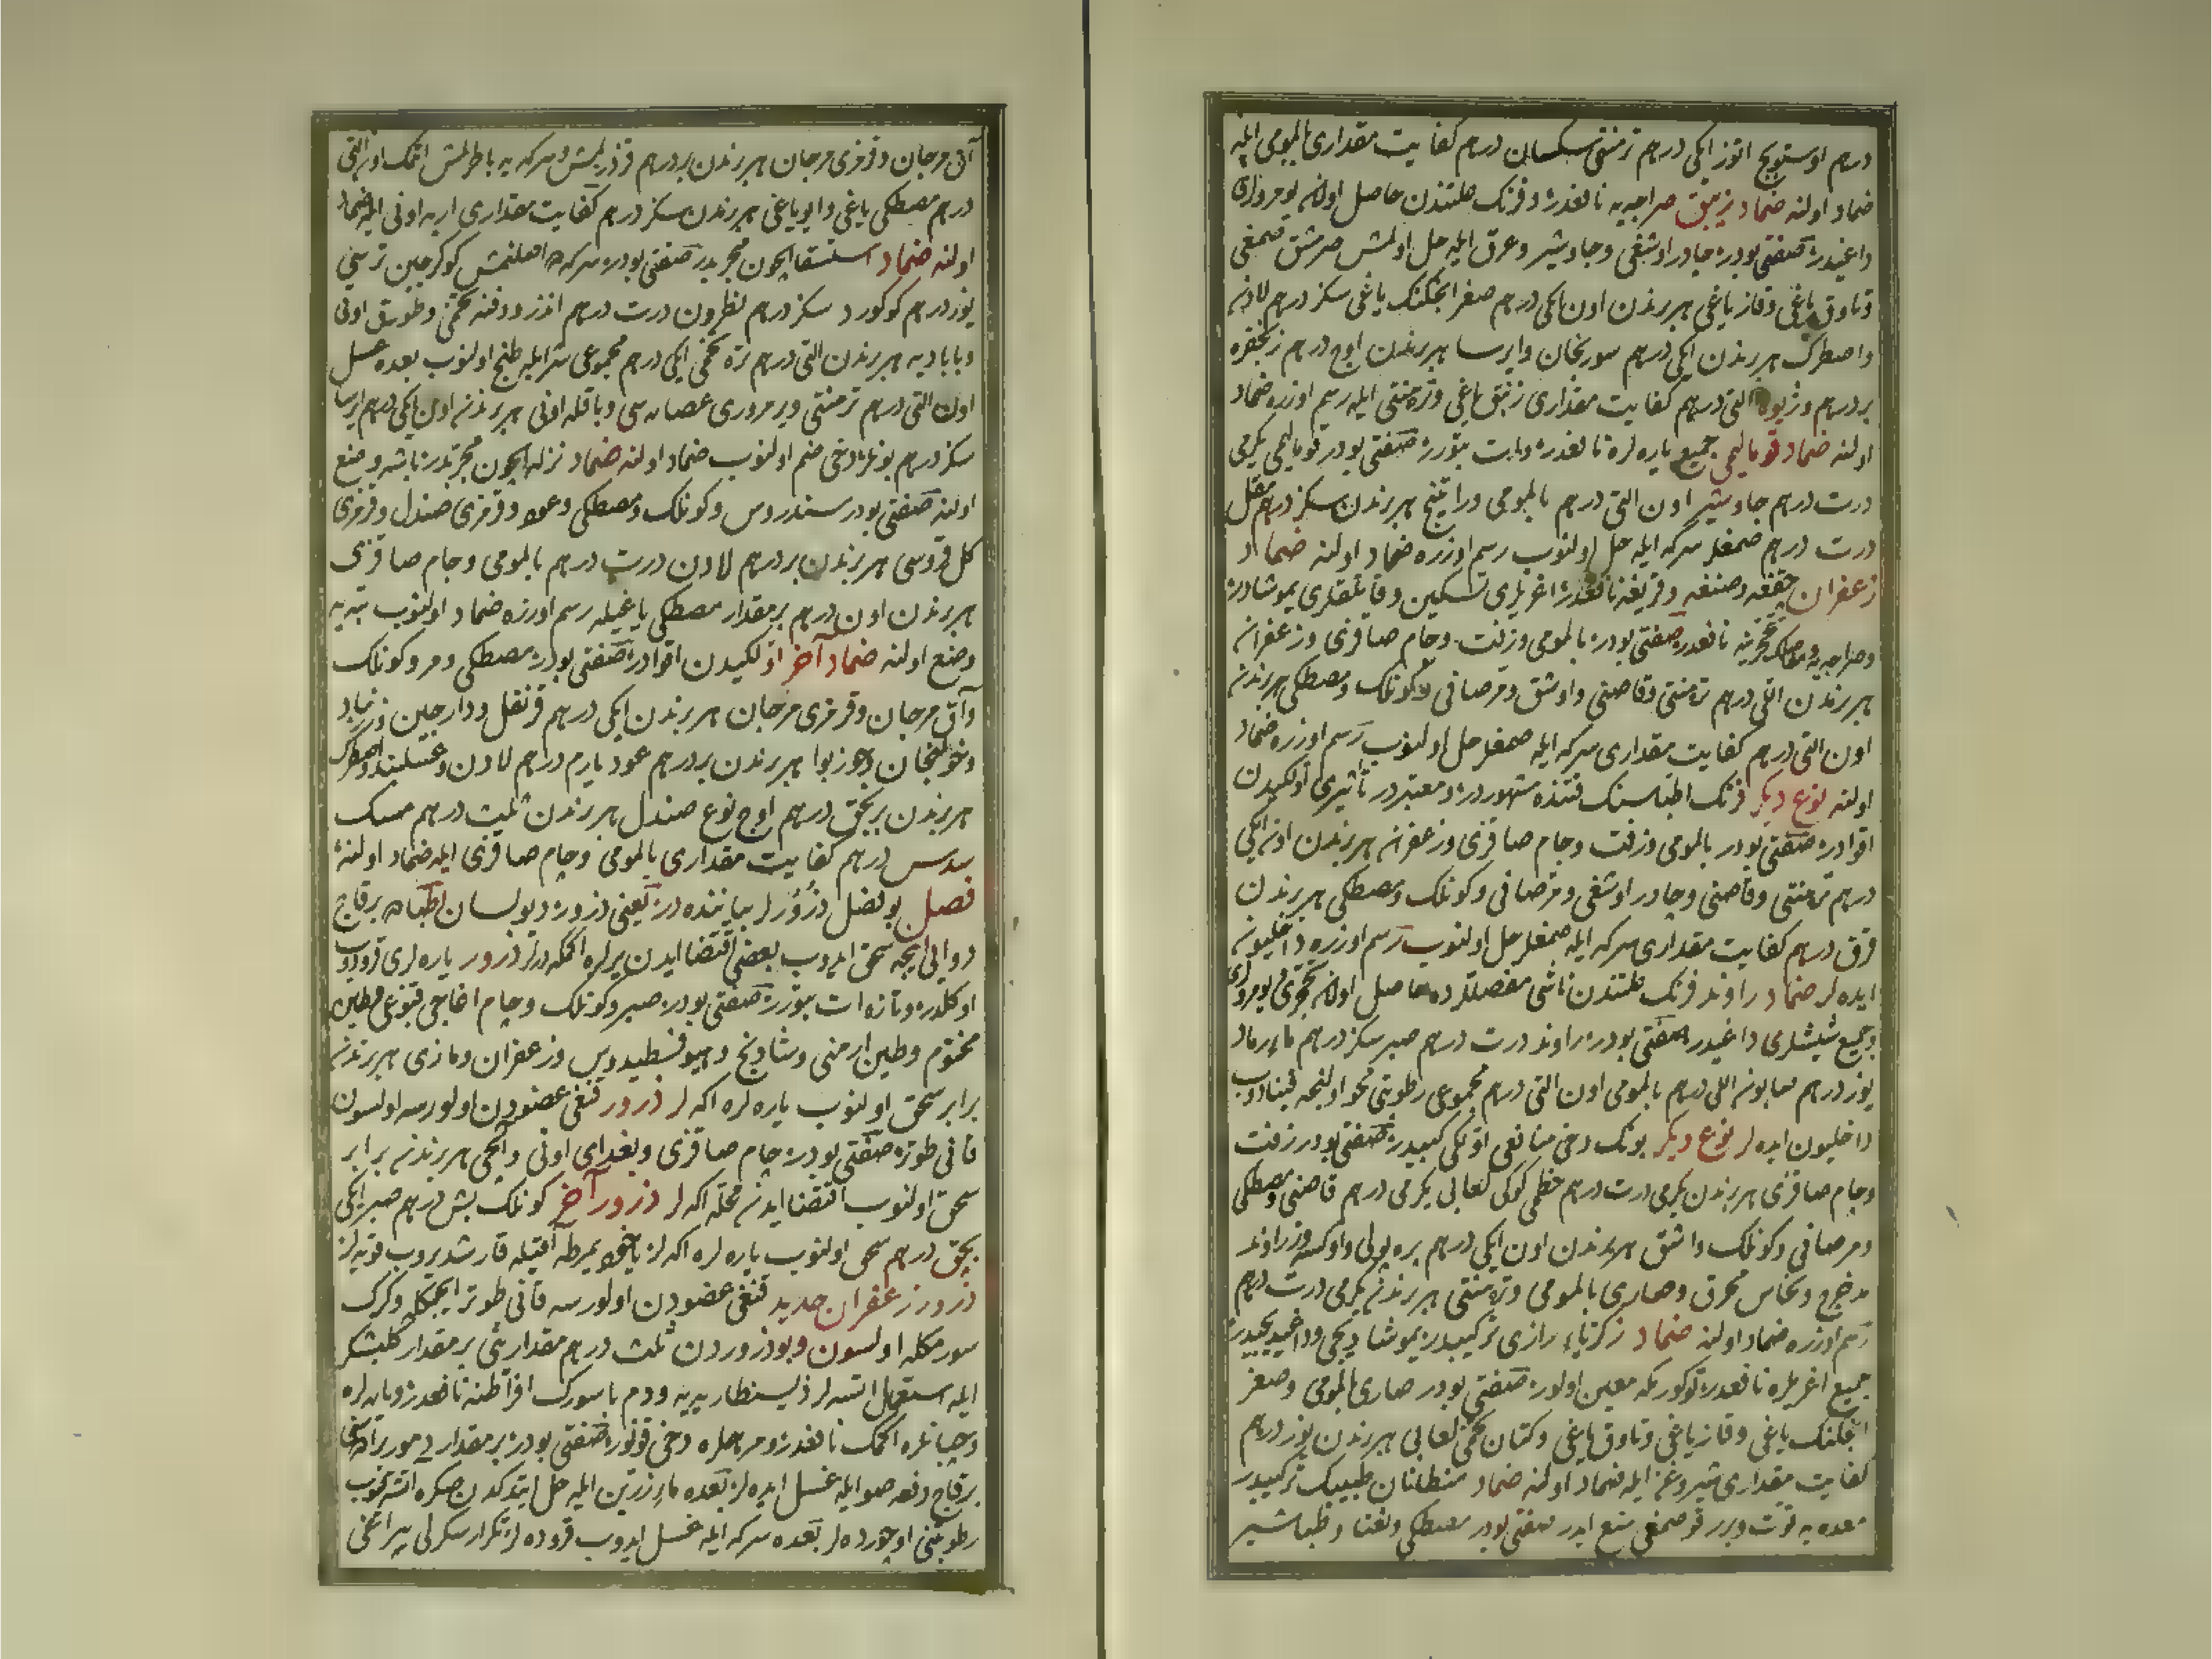 درهم اوستوبج اتوز ایکی درهم ترمنتی سکسان درهم کفایت مقداری بالمومی ایله
ضماد اولنه ضماد زیبق صراجه یه نافعدر و فرنک علتندن حاصل اولان یومرولری
داغیدر صنعتی بودر جادر اوشغی و جاوشیر و عرق ایله حل اولمش صرمشق صمغی
و طاوق یاغی و قاز یاغی هر برندن اون ایکی درهم صغر ایلیکنک یاغی سکز درهم لادن
و اصطرک هر برندن ایکی درهم سورنجان و ایرسا هر برندن اوج درهم زنجفره
بر درهم و ژیوه التی درهم کفایت مقداری زنبق یاغی و ترمنتی ایله رسم اوزره ضماد
اولنه ضماد قومالیمی جمیع یاره لره نافعدر و ات بتورر صنعتی بودر قومالیمی یکرمی
درت درهم جاوشیر اون التی درهم بالمومی و راتینج هر برندن سکز درهم مقل
درت درهم صمغلر سرکه ایله حل اولنوب رسم اوزره ضماد اولنه ضماد
زعفران نافعدر اغریلری تسکین و قاتیلقلری یموشادر
و صراجه یه نافعدر صنعتی بودر بالمومی و زفت و جام صاقزی و زعفران
هر برندن التی درهم ترمنتی و قاصنی و اوشق و مر صافی و کونلک و مصطکی هر برندن
اون التی درهم کفایت مقداری سرکه ایله صمغلر حل اولنوب رسم اوزره ضماد
اولنه نوع دیکر فرنک اطباسنک قتنده مشهور در و معتبر در تأثیری اولکیدن
اقوادر صنعتی بودر بالمومی و زفت و جام صاقزی و زعفران هر برندن اون ایکی
درهم ترمنتی و قاصنی و جادر اوشغی و مر صافی و کونلک و مصطکی هر برندن
قرق درهم کفایت مقداری سرکه ایله صمغلر حل اولنوب رسم اوزره داخلیون
ایده لر ضماد راوند فرنک علتندن ناشی مفصللرده حاصل اولان
و جمیع شیشلری داغیدر صنعتی بودر راوند درت درهم صبر سکز درهم ماء رماد
یوز درهم صابون اللی درهم بالمومی اون التی درهم مجموعی رطوبتی محو اولنجه قینادوب
داخلیون ایده لر نوع دیکر بونک دخی منافعی اولکی کبیدر صنعتی بودر زفت
و جام صاقزی هر برندن یکرمی درت درهم خطمی کوکی لعابی یکرمی درهم قاصنی و مصطکی
و مر صافی و کونلک و اشق هر برندن اون ایکی درهم و زراوند
مدحرج و نحاس محرق و صاری بالمومی و ترمنتی هر برندن یکرمی درت درهم
رسم اوزره ضماد اولنه ضماد زکریاء رازی ترکیبیدر یموشادیجی و داغیدیجیدر
جمیع اغریلره نافعدر معین اولور صنعتی بودر صاری بالمومی و صغر
ایلیکنک یاغی و قاز یاغی و طاوق یاغی و کتان تخمی لعابی هر برندن یوز درهم
کفایت مقداری ایله ضماد اولنه ضماد طبیبک ترکیبیدر
معده یه قوت ویرر قوصمغی منع ایدر صنعتی بودر مصطکی و نعنا و طباشیر
آق مرجان و قرمزی مرجان هر برندن بر درهم قزدرلمش و سرکه یه باطرلمش اتمک اون التی
درهم مصطکی یاغی و ایو یاغی هر برندن سکز درهم کفایت مقداری اربه اونی ایله ضماد
اولنه ضماد استسقا ایجون مجربدر صنعتی بودر سرکه ده اصلنمش کوکرجین ترسی
یوز درهم کوکورد سکز درهم نطرون درت درهم تخمی و طورق اوتی
و بابادیه هر برندن التی درهم تره تخمی ایکی درهم مجموعی شراب ایله طبخ اولنوب بعده عسل
اون التی درهم ترمنتی و عصاره سی و باقله اونی هر برندن اون ایکی درهم ایرسا
سکز درهم بونلر دخی ضم اولنوب ضماد اولنه ضماد نزله ایجون مجربدر باشه وضع
اولنه صنعتی بودر سندروس و کونلک و مصطکی و عود و قرمزی صندل و قرمزی
کل قروسی هر برندن بر درهم لادن درت درهم بالمومی و جام صاقزی
هر برندن اون درهم بر مقدار مصطکی یاغیله رسم اوزره ضماد اولنوب تپه یه
وضع اولنه ضماد آخر اولکیدن اقوادر صنعتی بودر مصطکی و مر و کونلک
و آق مرجان و قرمزی مرجان هر برندن ایکی درهم قرنفل و دارجین و زرنباد
و خولنجان و جوز بوا هر برندن بر درهم عود یارم درهم لادن و عسلبند و اصطرک
هر برندن بر بجق درهم اوج نوع صندل هر برندن ثلث درهم مسک
سدس درهم کفایت مقداری بالمومی و جام صاقزی ایله ضماد اولنه
فصل بو فصل ذرورلر بیاننده در یعنی ذرور دیو لسان اطباده برقاج
دوالی ایجه سحق ایدوب بعض اقتضا ایدن یرلره اکمکه درلر ذرور یاره لری قرودوب
اوکلدر و تازه ات بتورر صنعتی بودر صبر و کونلک و جام اغاجی قبوغی و طین
مختوم و طین ارمنی و شادنج و هیوفسطیدوس و زعفران و مازی هر برندن
برابر سحق اولنوب یاره لره اکه لر ذرور قنغی عضودن اولورسه اولسون
قانی طوتر صنعتی بودر جام صاقزی و بغدای اونی و الجی هر برندن برابر
سحق اولنوب اقتضا ایدن محله اکه لر ذرور آخر کونلک بش درهم صبر ایکی
بجق درهم سحق اولنوب یاره لره اکه لر یاخود یمرطه آقیله قارشدیروب قویه لر
ذرور زعفران حدید قنغی عضودن اولورسه قانی طوتر ایجیکله و کرک
سورمکله اولسون و بو ذروردن ثلث درهم مقدارینی بر مقدار کلبشکر
ایله استعمال ایتسه لر ذیسنطاریه یه و دم باسورک افراطنه نافعدر و یاره لره
و جبانلره اکمک نافعدر دخی قونور صنعتی بودر بر مقدار دمور
برقاج دفعه صو ایله غسل ایده لر بعده ایله حل ایتدکدن صکره اتشه قیوب
رطوبتنی اوجورده لر بعده سرکه ایله غسل ایدوب قروده لر تکرار سکرلی